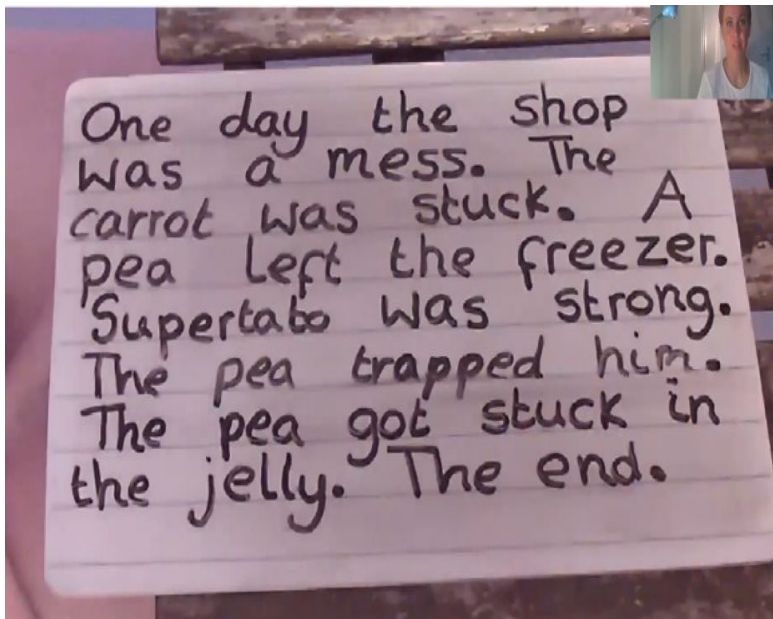 One day the shop
was a mess. The
carrot was stuck. A
pea left the freezer.
Supertato was strong.
The pea trapped him.
The pea got stuck in
the jelly. The end.